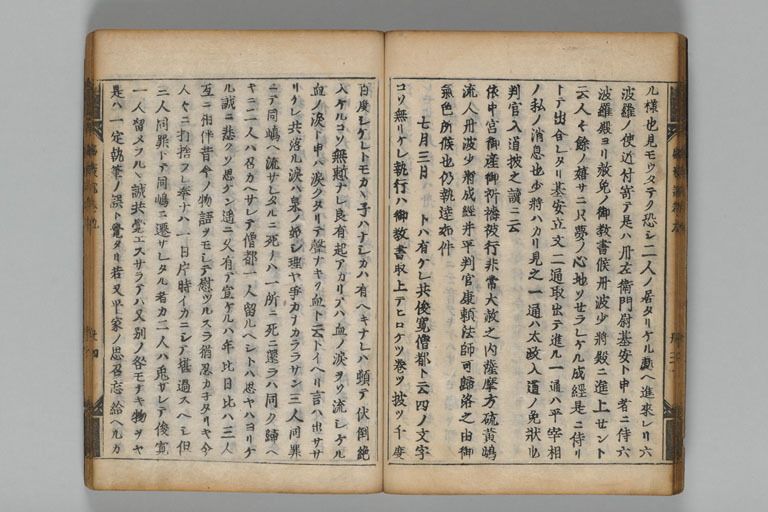 ル様也見モウステク恐シ二人ノ居タリケル處ヘ進來レリ六
波羅ノ使近付寄テ是ハ丹左衛門尉基安ト申者ニ侍六
波羅殿ヨリ赦免ノ御教書候丹波少將殿ニ進上セント
云人々餘ノ嬉サニ只夢ノ心地ソセラレケル成經是ニ侍リ
トテ出合レタリ基安立文二通取出テ進ル一通ハ平宰相
ノ私ノ消息也少將ハカリ見之一通ハ太政入道ノ免狀也
判官入道披之讀ニ云
依中宮御産御祈禱被行非常大赦之内薩摩方硫黄嶋
流人丹波少將成經并平判官康頼法師可歸洛之由御
氣色所候也仍執達如件
七月三日
トハ有ケレ共俊寛僧都ト云四ノ文字
コソ無リケレ執行ハ御教書取上テヒロケツ巻ツ披ツ千度
百度シケレトモカヽ子ハナシカハ有ヘキナレハ頓テ伏倒絶
入ケルコソ無慙ナレ良有起アカリテハ血ノ涙ヲソ流シケル
血ノ涙ト申ハ涙クタリテ聲ナキヲ血ト云トイヘリ言ハ出サヽ
リケレ共落ル涙ハ泉ノ如シ理ヤ爭カナカラサラン三人同罪
ニテ同嶋ヘ流サレタルニ死ノハ一所ニ死ニ還ラハ同ク歸ヘ
キニ二人ハ召カヘサレテ僧都一人留ルヘシトハ思ヤハヨリケ
ル誠ニ悲クソ思ケン遥ニ又有テ宣ケルハ年比日比ハ三人
互ニ相伴昔今ノ物語ヲモシテ慰ツルスラ猶忍カ子タリキ今
人々ニ打捨ラレ奉ナハ一日片時イカニシテ堪過スヘシ但
三人同罪トテ同嶋ニ遷サレタル者カ二人ハ免サレテ俊寛
一人留メラルヽ誠共覺エスサラテハ又別ノ咎モナキ物ヲヤ
是ハ一定執筆ノ誤ト覺タリ若又平家ノ思召忘給ヘルカ